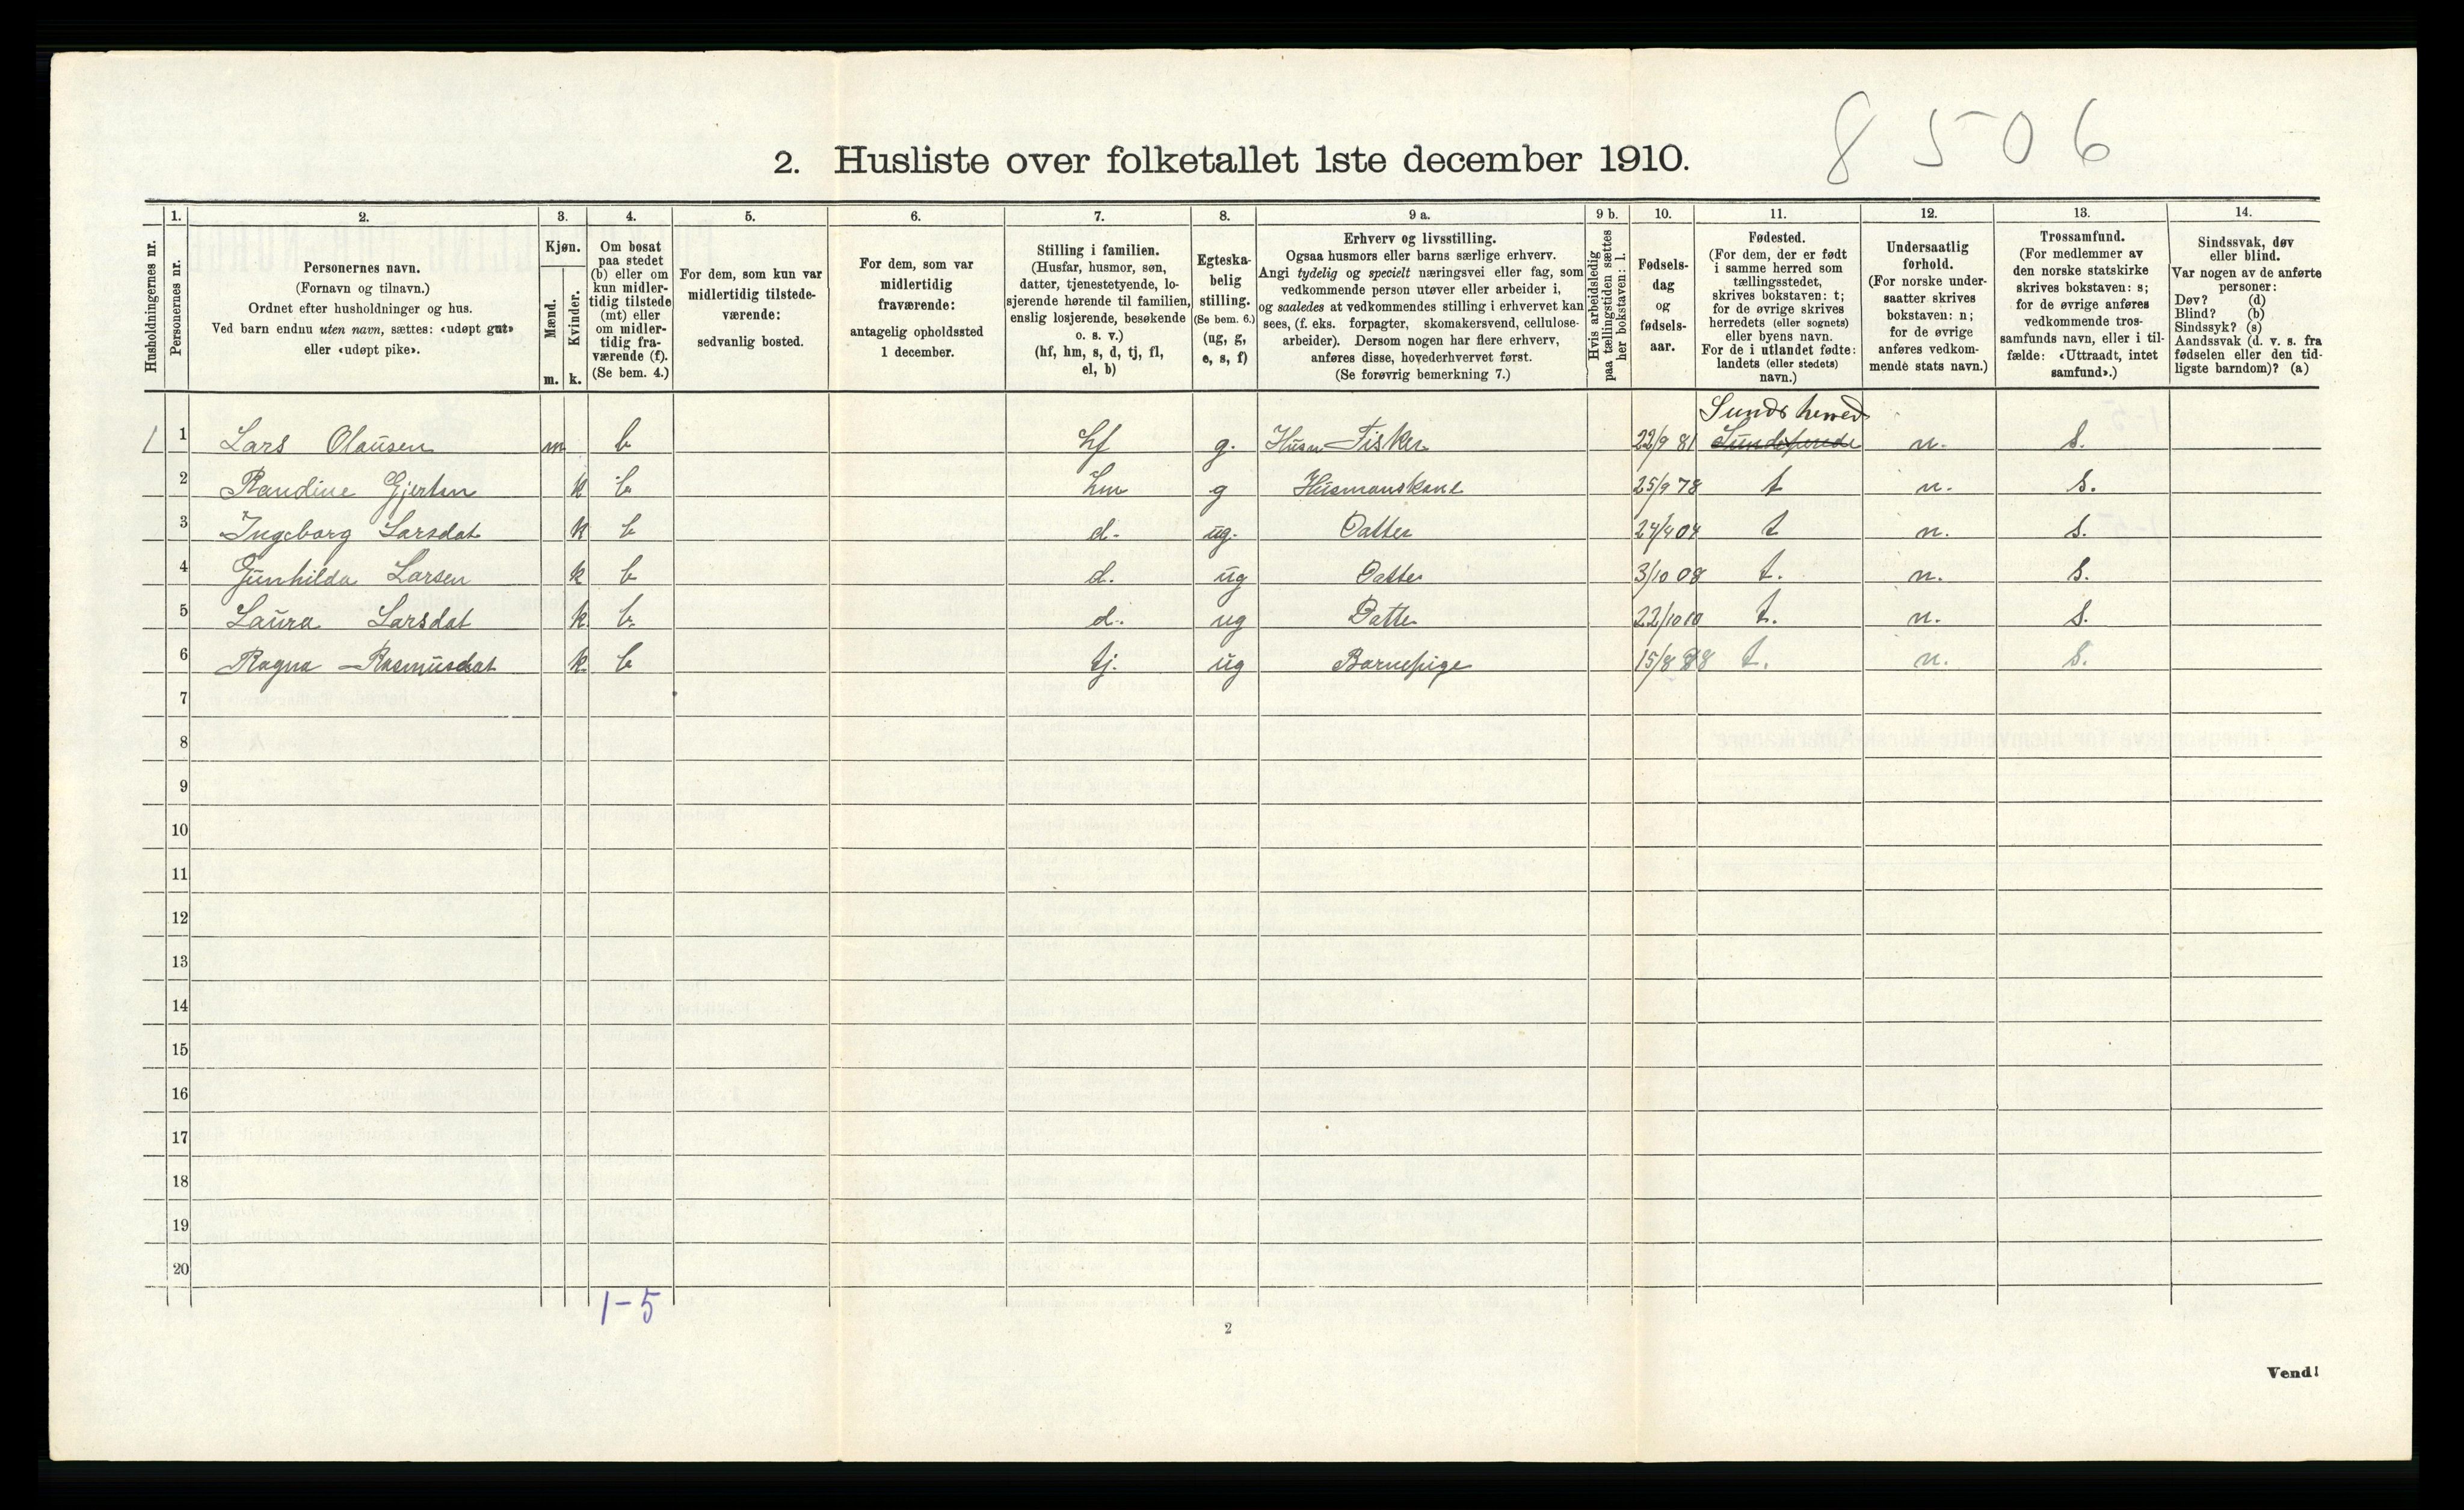 8 5 0 6
2. Husliste over folketallet 1ste december 1910.
Husholdningernes nr.
1.
Personernes nr.
2.
Personernes navn.
(Fornavn og tilnavn.)
Ordnet efter husholdninger og hus.
Ved barn endnu uten navn, sættes: «udøpt gut»
eller «udøpt pike».
3.
Kjøn.
Mænd.
Kvinder.
m. k.
4.
Om bosat
paa stedet
(b) eller om
kun midler-
tidig tilstede
(mt) eller
om midler-
tidig fra-
værende (f).
(Se bem. 4.)
5.
For dem, som kun var
midlertidig tilstede-
værende:
sedvanlig bosted.
6.
For dem, som var
midlertidig
fraværende:
antagelig opholdssted
1 december.
7.
Stilling i familien.
(Husfar, husmor, søn,
datter, tjenestetyende, lo-
sjerende hørende til familien,
enslig losjerende, besøkende
o. s. v.)
(hf, hm, s, d, tj, fl,
el, b)
8.
Egteska-
belig
stilling.
(Se bem. 6.)
(ug, g,
e, s, f)
9 a.
Erhverv og livsstilling.
Ogsaa husmors eller barns særlige erhverv.
Angi tydelig og specielt næringsvei eller fag, som
vedkommende person utøver eller arbeider i,
og saaledes at vedkommendes stilling i erhvervet kan
sees, (f. eks. forpagter, skomakersvend, cellulose-
arbeider). Dersom nogen har flere erhverv,
anføres disse, hovederhvervet først.
(Se forøvrig bemerkning 7.)
9 b.
Hvis arbeidsledig
paa tællingstiden sættes
her bokstaven: l.
10.
Fødsels-
dag
og
fødsels-
aar.
11.
Fødested.
(For dem, der er født
i samme herred som
tællingsstedet,
skrives bokstaven: t;
for de øvrige skrives
herredets (eller sognets)
eller byens navn.
For de i utlandet fødte:
landets (eller stedets)
navn.)
12.
Undersaatlig
forhold.
(For norske under-
saatter skrives
bokstaven: n;
for de øvrige
anføres vedkom-
mende stats navn.)
13.
Trossamfund.
(For medlemmer av
den norske statskirke
skrives bokstaven: s;
for de øvrige anføres
vedkommende tros-
samfunds navn, eller i til-
fælde: «Uttraadt, intet
samfund».)
14.
Sindssvak, døv
eller blind.
Var nogen av de anførte
personer:
Døv? (d)
Blind? (b)
Sindssyk? (s)
Aandssvak (d. v. s. fra
fødselen eller den tid-
ligste barndom)? (a)
Sunds herred
1 1 Lars Olausen m b hf g. Husm Fisker 22/9 81 n. s.
2 Randine Gjertsn k b hm g Husmanskone 25/9 78 t n. s.
3 Ingeborg Larsdat k b d. ug. Datter 24/4 04 t n. s.
4 Gunhilda Larsen k b d. ug Datter 3/10 08 t. n. s.
5 Laura Larsdat k b. d. ug Datter 22/10 10 t. n. s.
6 Ragna Rasmusdat k b tj. ug Barnepige 15/8 t. n. s.
7
8
9
10
11
12
13
14
15
16
17
18
19
20
1-5
2
Vend!